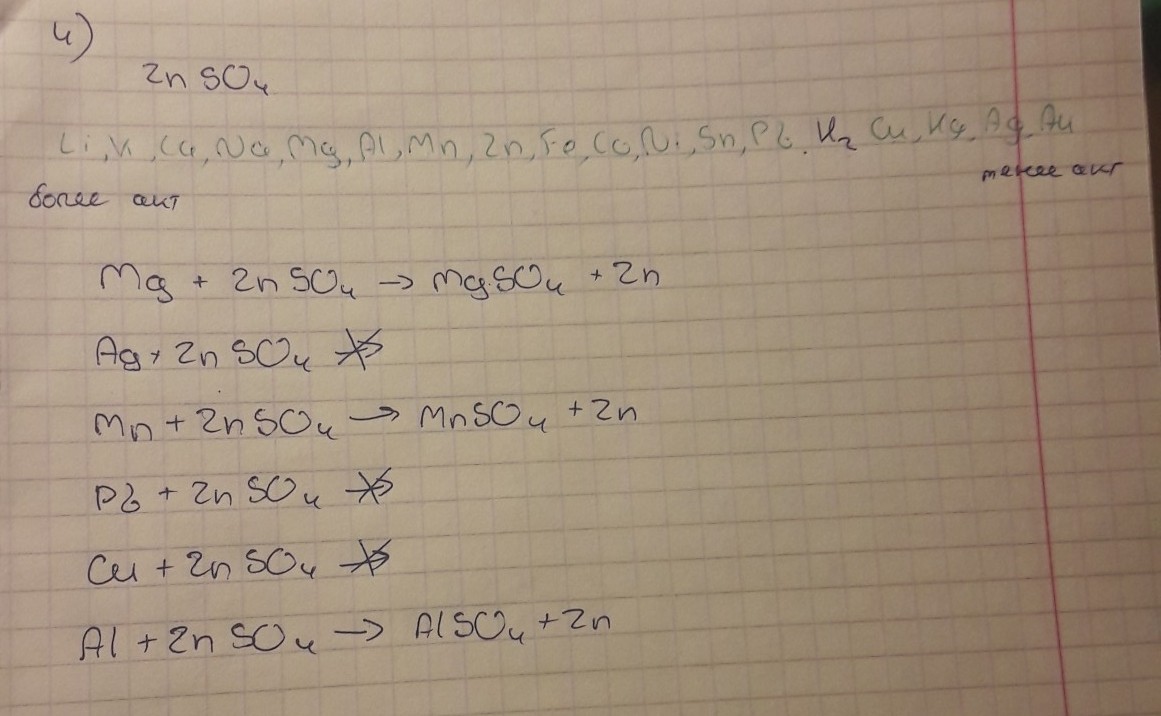 4)
Zn SO₄
Li, K, Ca, Na, Mg, Al, Mn, Zn, Fe, Co, Ni, Sn, Pb, H₂ Cu, Hg, Ag, Au
менее акт
более акт
Mg + Zn SO₄ → MgSO₄ + Zn
Ag + Zn SO₄ ↛
Mn + Zn SO₄ → MnSO₄ + Zn
Pb + Zn SO₄ ↛
Cu + Zn SO₄ ↛
Al + Zn SO₄ → AlSO₄ + Zn